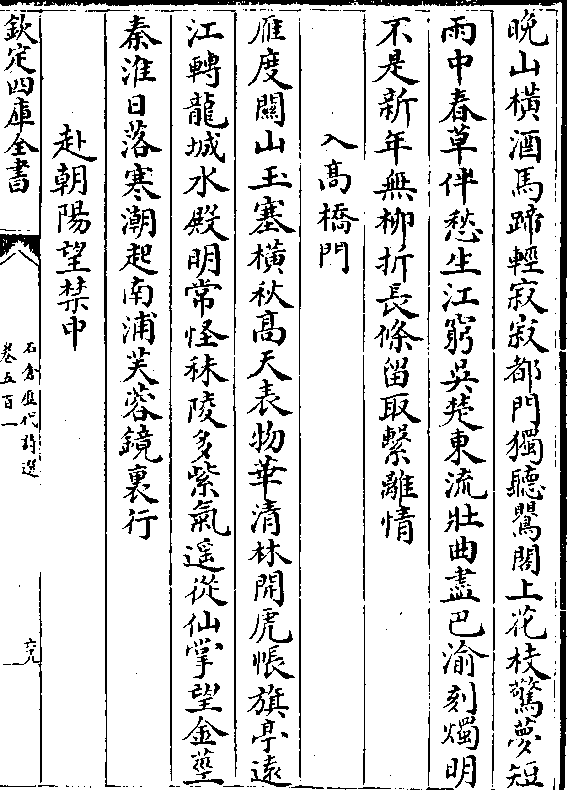 晚山橫酒馬蹄輕寂寂都門獨聽鸎閣上花枝驚夢短
雨中春草伴愁生江窮吳楚東流壯曲盡巴渝刻燭明
不是新年無柳折長條留取繫離情
入髙橋門
雁度關山玉塞橫秋髙天表物華清林開虎帳旗亭遠
江轉龍城水殿明常怪秣陵多紫氣遥從仙掌望金莖
秦淮日落寒潮起南浦芙蓉鏡裏行
赴朝陽望禁中
欽定四庫全書
石倉歷代詩選
卷五百一
六九